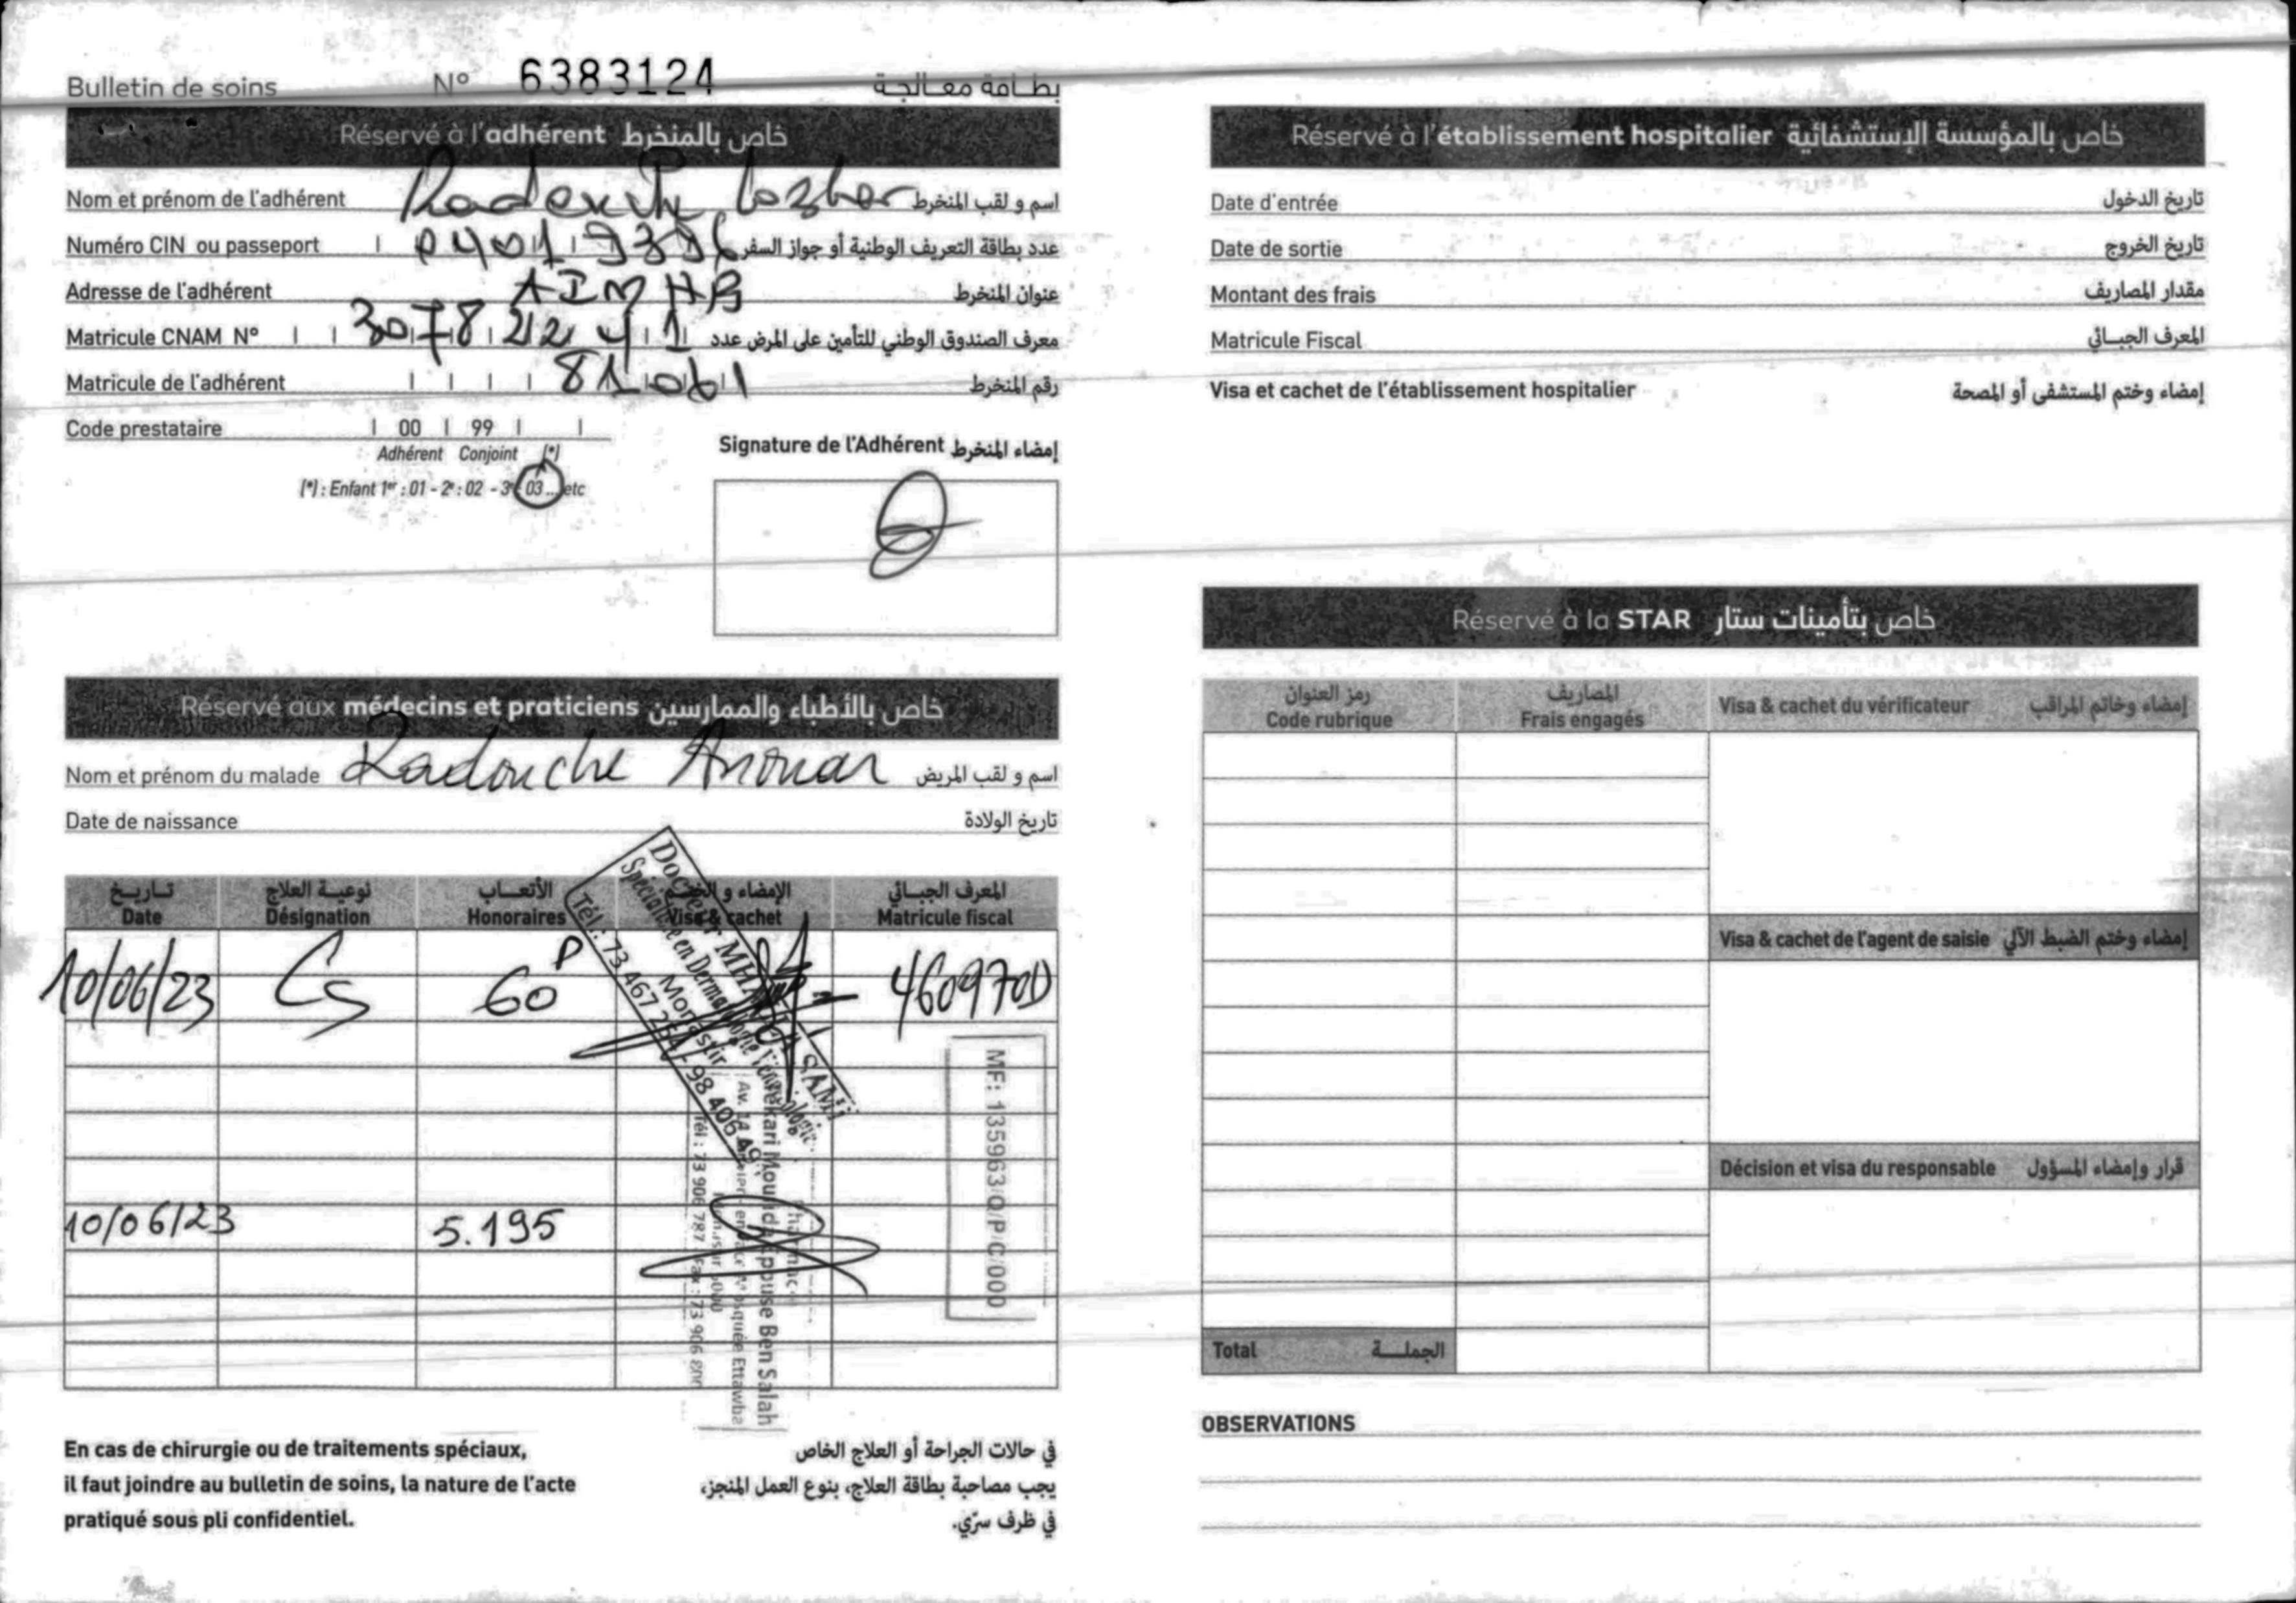 Bulletin de soins N° 6383124 بطاقة معالجة
Réservé à l'adhérent خاص بالمنخرط
Nom et prénom de l'adhérent lazhar اسم و لقب المنخرط
Numéro CIN ou passeport عدد بطاقة التعريف الوطنية أو جواز السفر
Adresse de l'adhérent عنوان المنخرط
Matricule CNAM N° معرف الصندوق الوطني للتأمين على المرض عدد
Matricule de l'adhérent 81061 رقم المنخرط
Code prestataire 00 99
Adhérent Conjoint (*)
(*) : Enfant 1er : 01 - 2e : 02 - 3e : 03 ... etc
Signature de l'Adhérent إمضاء المنخرط
Réservé aux médecins et praticiens خاص بالأطباء والممارسين
Nom et prénom du malade Radouche Anouar اسم و لقب المريض
Date de naissance تاريخ الولادة
تـاريـخ نوعيـة العلاج الأتعـاب الإمضاء و الختم المعرف الجبـائي
Date Désignation Honoraires Visa & cachet Matricule fiscal
10/06/23 Cs 60 D 460970D
Docteur SAMI
Spécialiste en Dermatologie
Monastir
Tél.: 73 467
MF: 135963/Q/P/C/000
10/06/23 5.195
Epouse Ben Salah
Tél : 73 906 787 Fax : 73 906
En cas de chirurgie ou de traitements spéciaux,
il faut joindre au bulletin de soins, la nature de l'acte
pratiqué sous pli confidentiel.
في حالات الجراحة أو العلاج الخاص
يجب مصاحبة بطاقة العلاج، بنوع العمل المنجز،
في ظرف سرّي.
Réservé à l'établissement hospitalier خاص بالمؤسسة الإستشفائية
Date d'entrée تاريخ الدخول
Date de sortie تاريخ الخروج
Montant des frais مقدار المصاريف
Matricule Fiscal المعرف الجبـائي
Visa et cachet de l'établissement hospitalier إمضاء وختم المستشفى أو المصحة
Réservé à la STAR خاص بتأمينات ستار
رمز العنوان المصاريف
Code rubrique Frais engagés Visa & cachet du vérificateur إمضاء وخاتم المراقب
Visa & cachet de l'agent de saisie إمضاء وختم الضبط الآلي
Décision et visa du responsable قرار وإمضاء المسؤول
Total الجملـة
OBSERVATIONS